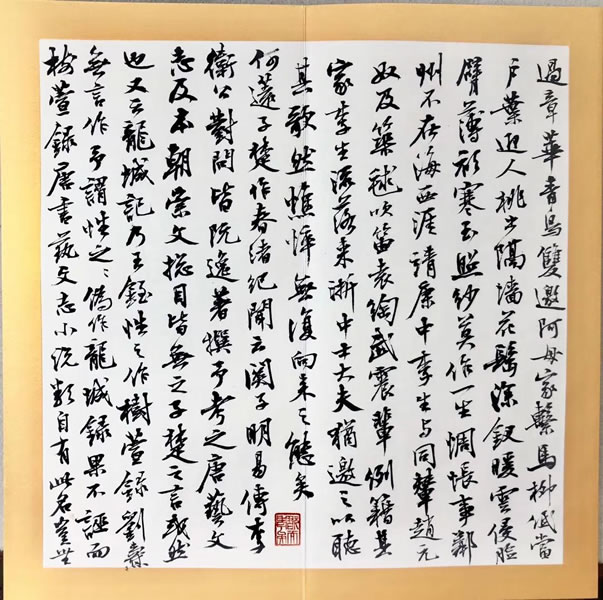 過章華青鳥雙邀阿母家繫馬柳低當
戶葉迎人桃出隔墻花鬢深釵暖雲侵臉
臂薄衫寒玉照紗莫作一生惆悵事鄰
州不在海西涯靖康中李生與同輩趙元
奴及築毬吹笛袁綯武震輩例籍其
家李生流落來浙中士大夫猶邀之以聽
其歌然憔悴無復向來之態矣
何薳子楚作春渚紀聞云關子明易傳李
衛公對問皆阮逸著撰予考之唐藝文
志及本朝崇文総目皆無之子楚之言或然
也又云龍城記乃王銍性之作樹萱錄劉燾
無言作予謂性之之偽作龍城錄果不誣而
樹萱錄唐書藝文志小說類自有此名豈